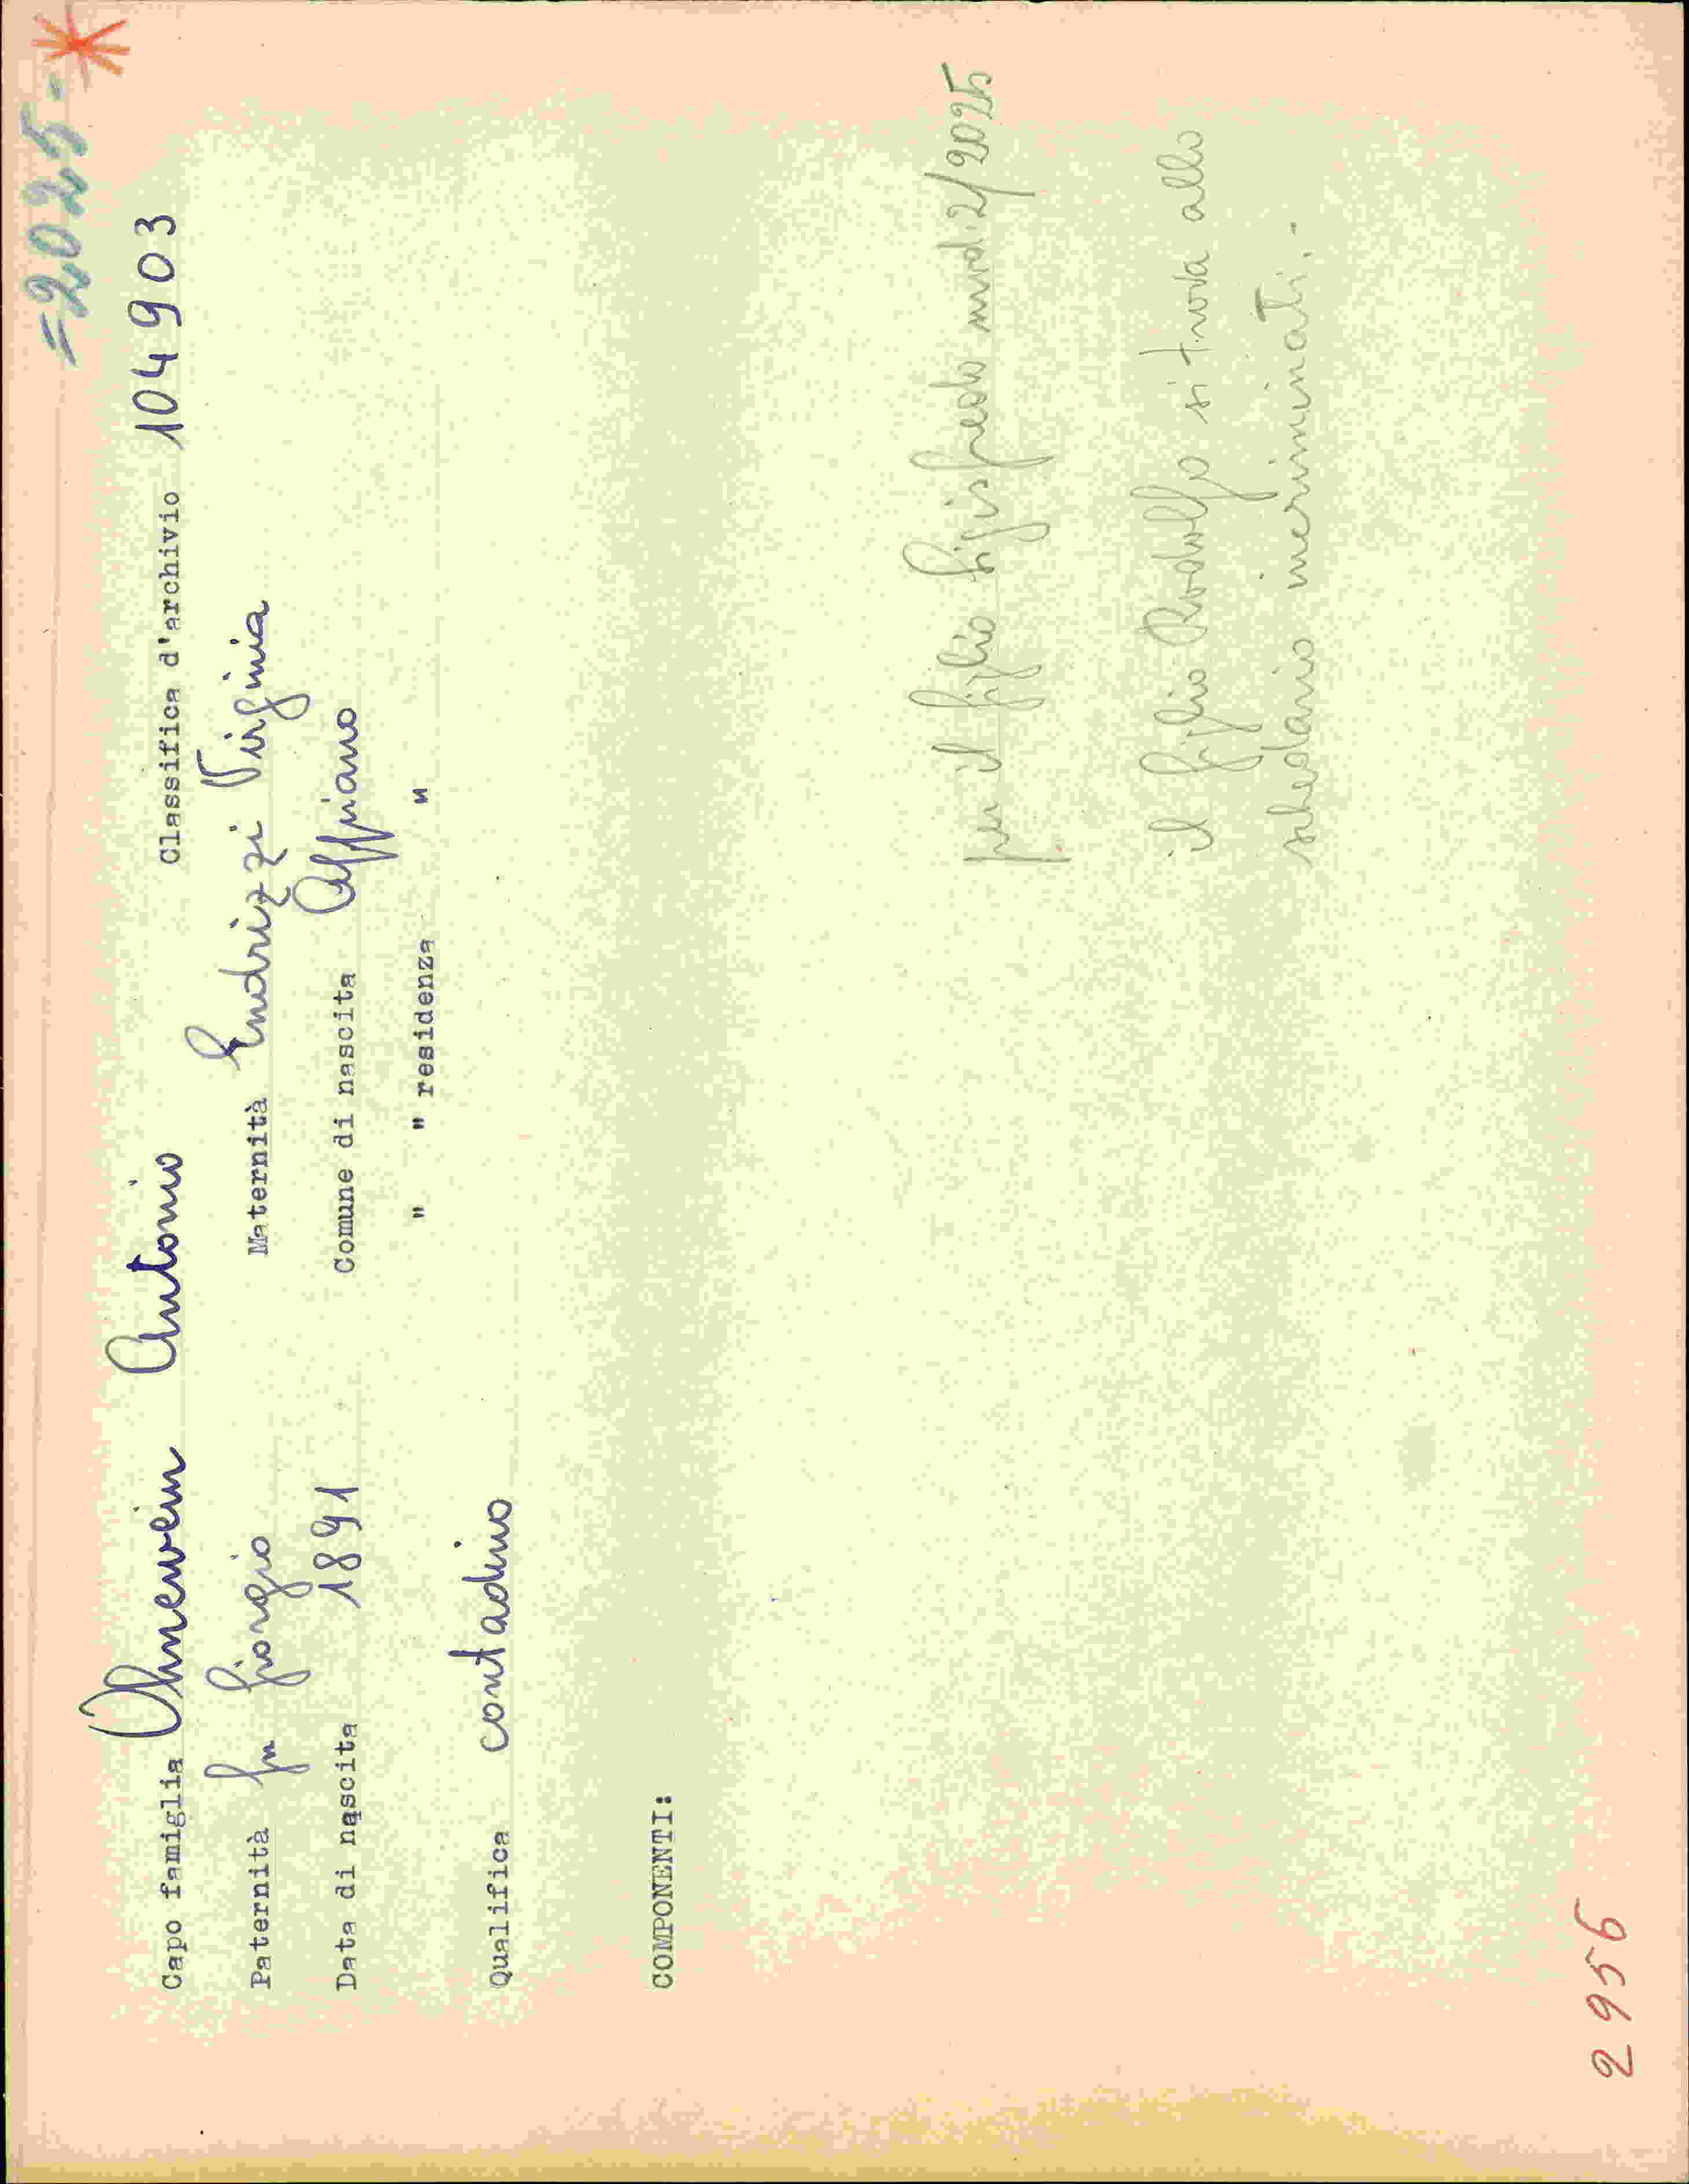 =2025-
Capo famiglia Ohnewein Antonio Classifica d'archivio 104903
Paternità fu Giorgio Maternità Endrizzi Virginia
Data di nascita 1891 Comune di nascita Appiano
" " residenza "
Qualifica contadino
COMPONENTI:
per il figlio Sigisfredo 2/2025
il figlio Rodolfo si trova allo
schedario incriminati.-
2956